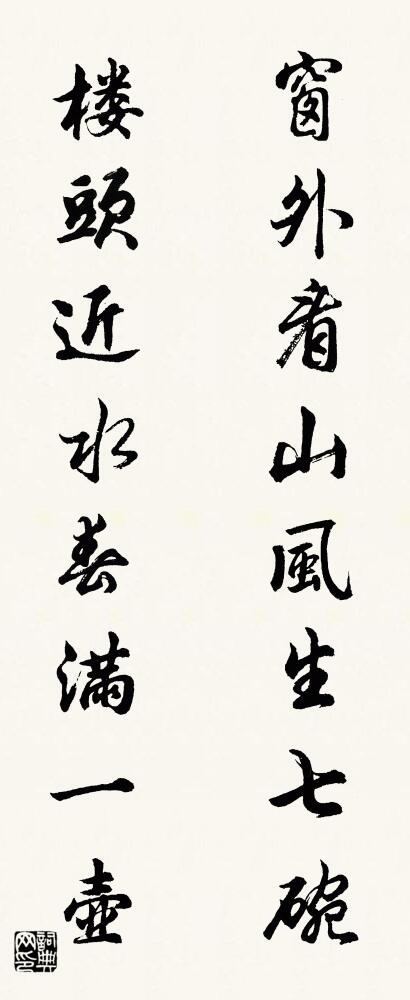 窗外看山風生七碗
楼頭近水春满一壺
詞典网印